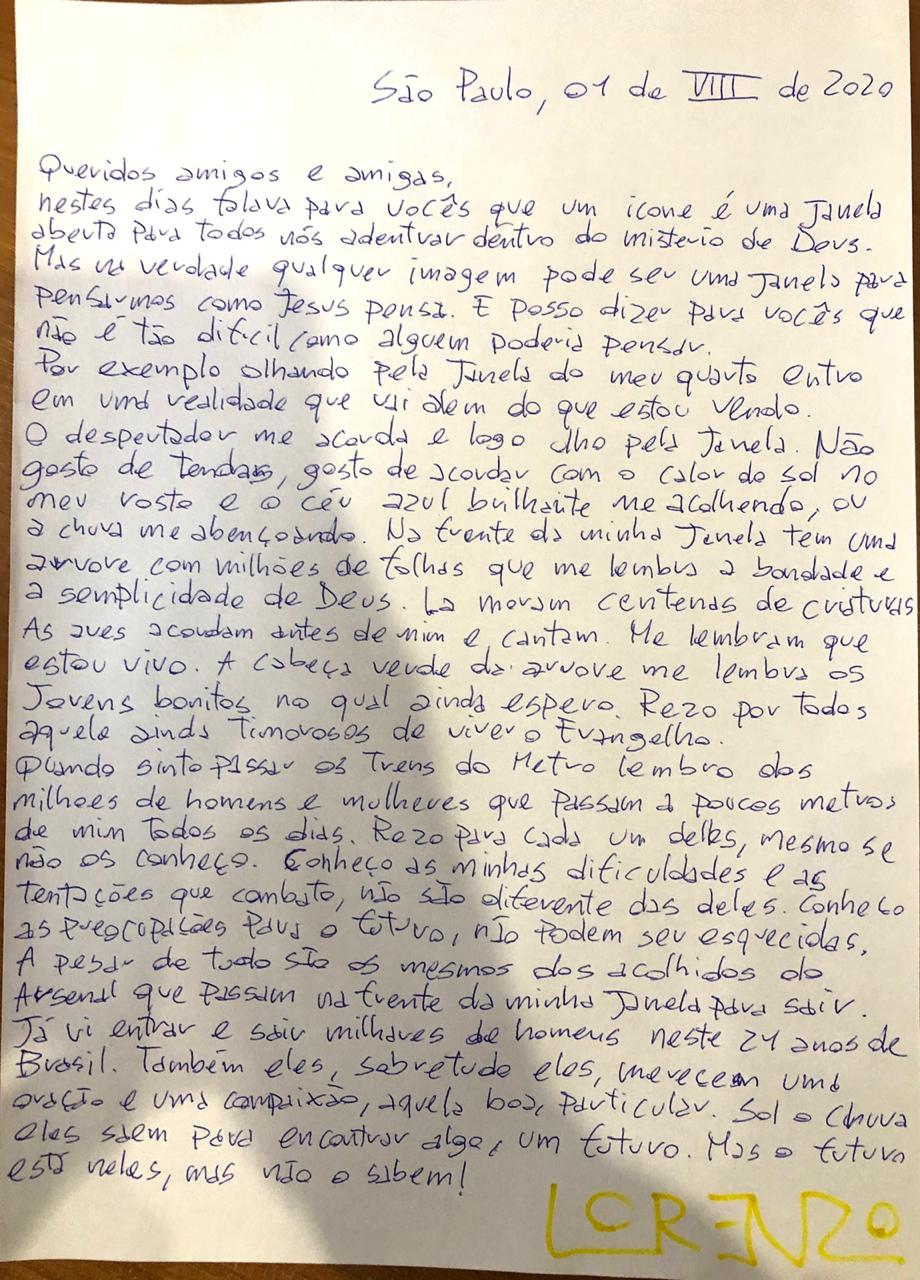 São Paulo, 01 de VIII de 2020
Queridos amigos e amigas,
nestes dias falava para vocês que um icone é uma Janela
aberta para todos nós adentrar dentro do misterio de Deus.
Mas na verdade qualquer imagem pode ser uma Janela para
pensarmos como Jesus pensa. E posso dizer para vocês que
não é tão dificil como alguem poderia pensar.
Por exemplo olhando pela Janela do meu quarto entro
em uma realidade que vai alem do que estou vendo.
O despertador me acorda e logo olho pela Janela. Não
gosto de tendas, gosto de acordar com o calor do sol no
meu rosto e o céu azul brilhante me acolhendo, ou
a chuva me abençoando. Na frente da minha Janela tem uma
arvore com milhões de folhas que me lembra a bondade e
a semplicidade de Deus. La moram centenas de criaturas
As aves acordam antes de mim e cantam. Me lembram que
estou vivo. A cabeça verde da arvore me lembra os
Jovens bonitos no qual ainda espero. Rezo por todos
aquele ainda Timorosos de viver o Evangelho.
Quando sinto passar os Trens do Metro lembro dos
milhoes de homens e mulheres que passam a poucos metros
de mim Todos os dias. Rezo para cada um delles, mesmo se
não os conheço. Conheço as minhas dificuldades e as
tentações que combato, não são diferente das deles. Conheco
as preocopações para o futuro, não podem ser esquecidas.
A pesar de tudo são os mesmos dos acolhidos do
Arsenal que passam na frente da minha Janela para sair.
Já vi entrar e sair milhares de homens neste 21 anos de
Brasil. Também eles, sobretudo eles, merecem uma
oração e uma compaixão, aquela boa, particular. Sol o chuva
eles saem para encontrar algo, um futuro. Mas o futuro
está neles, mas não o sabem!
LORENZO